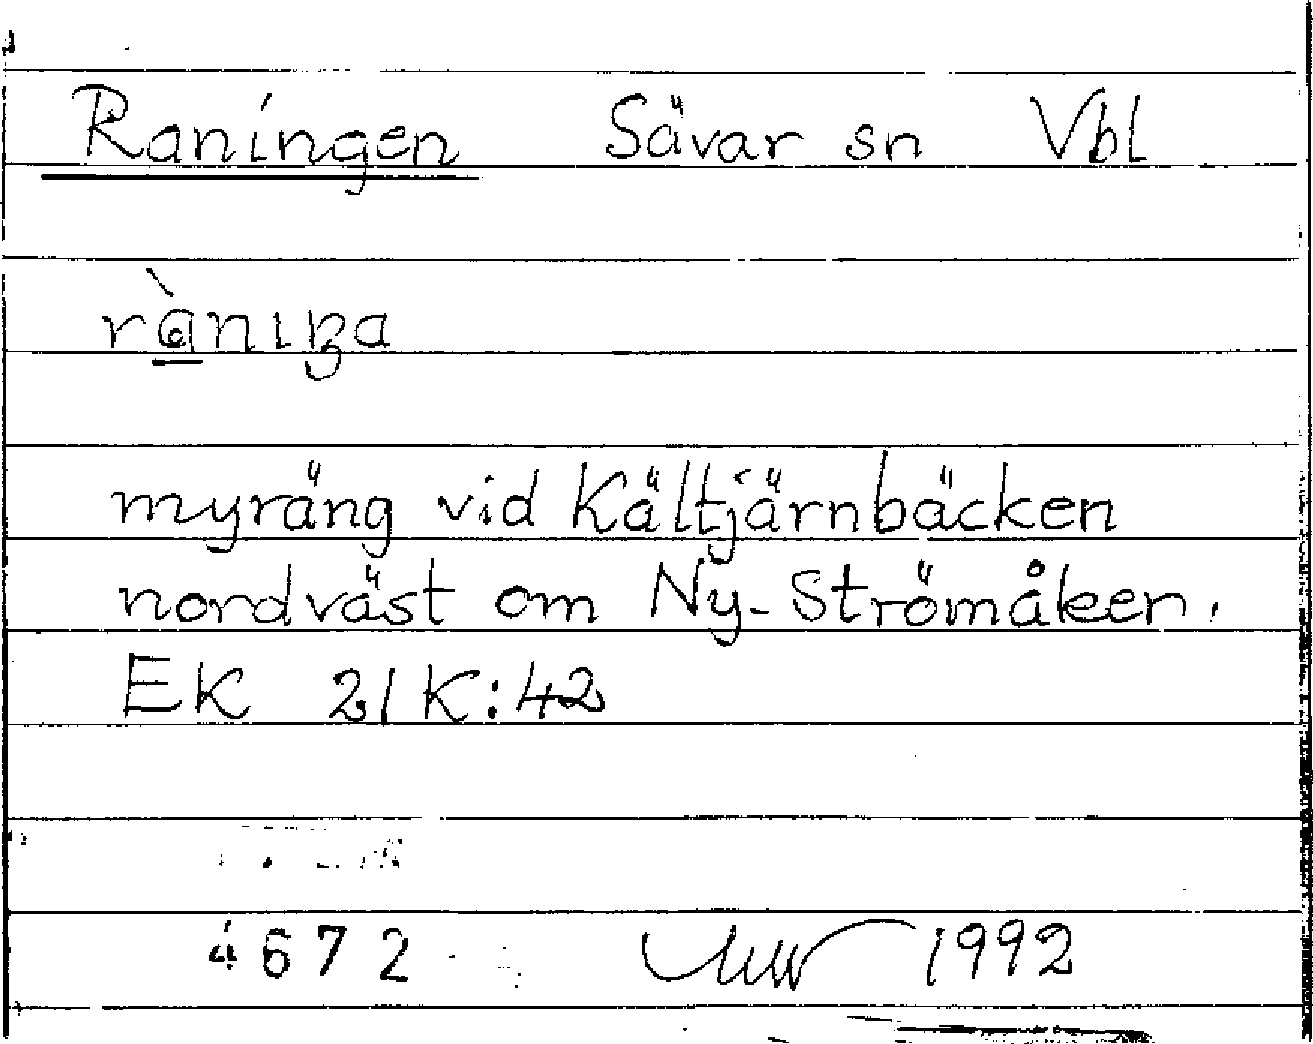 Raningen Sävar sn Vbl
myräng vid Kältjärnbäcken
nordväst om Ny-Strömåker.
EK 21K:42
4672 1992